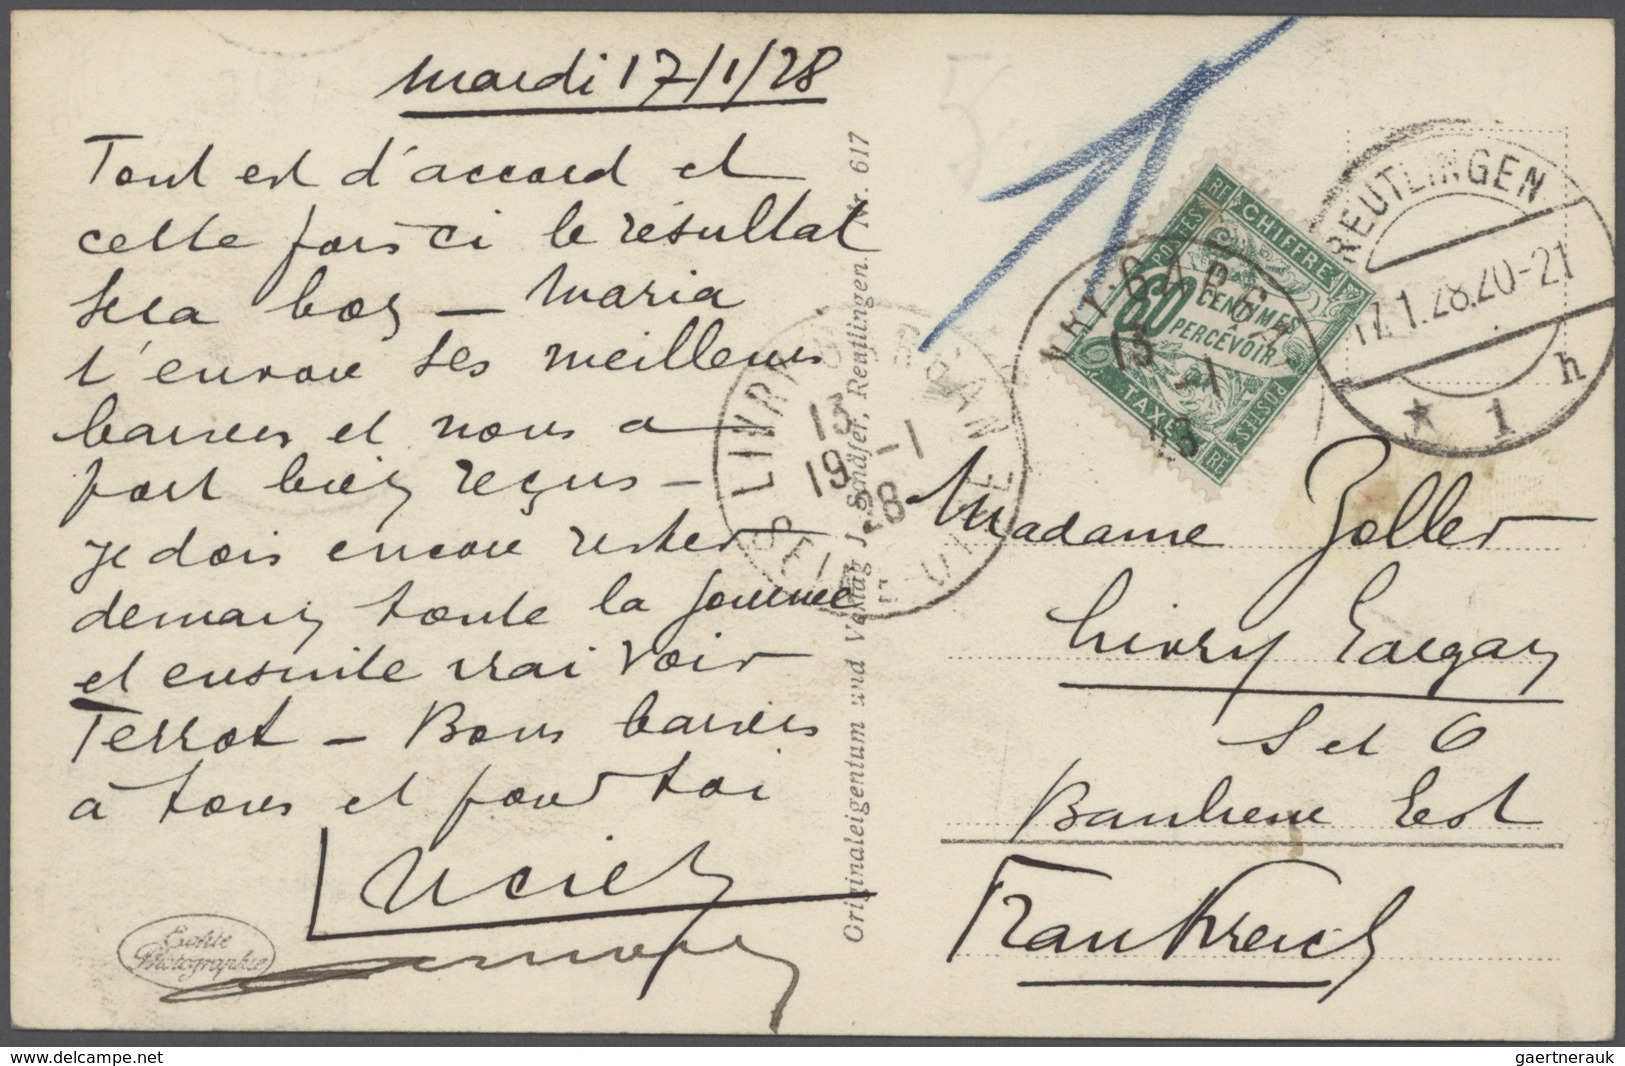 mardi 17/1/28
Tout est d'accord et
cette fois ci le résultat
sera bon — Maria
t'envoie ses meilleurs
baisers et nous a
fort bien reçus —
Je dois encore rester
demain toute la journée
et ensuite vrai voir
Terrot — Bons baisers
à tous et pour toi
Lucien
Echte
Photographie
Originaleigentum und Verlag J. Schäfer, Reutlingen. Nr. 617
LIVRY
13
19 -1
28
SEINE
REUTLINGEN
17.1.28.20-21
* 1 h
RF
POSTES
CHIFFRE
60
CENTIMES
À
PERCEVOIR
TAXE
POSTES
RF
13
-1
Madame Zoller
Livry Gargan
S et O
Banlieue Est
Frankreich
gaertnerauk
www.delcampe.net